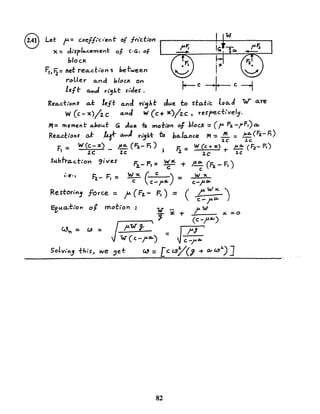 2.41 Let μ = coefficient of friction
x = displacement of C.G. of
block
F₁, F₂ = net reactions between
roller and block on
left and right sides.
W
μF₁ G a μF₂
F₁ x F₂
c c
Reactions at left and right due to static load W are
W(c-x)/2c and W(c+x)/2c, respectively.
M = moment about G due to motion of block = (μF₂-μF₁)a
Reactions at left and right to balance M = M/2c = μa/2c (F₂-F₁)
F₁ = W(c-x)/2c - μa/2c (F₂-F₁) ; F₂ = W(c+x)/2c + μa/2c (F₂-F₁)
Subtraction gives F₂-F₁ = Wx/c + μa/c (F₂-F₁)
i.e., F₂-F₁ = Wx/c (c/(c-μa)) = Wx/(c-μa)
Restoring force = μ(F₂-F₁) = (μWx/(c-μa))
Equation of motion : W/g ẍ + μW/(c-μa) x = 0
ωₙ = ω = √(μWg/W(c-μa)) = √(μg/(c-μa))
Solving this, we get ω = [cω²/(g + aω²)]
82